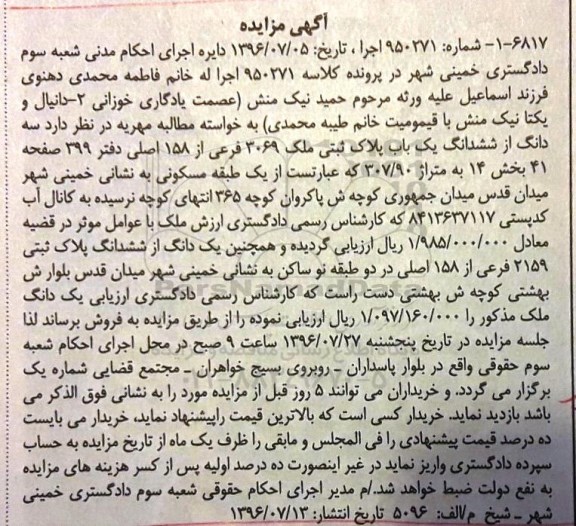 آگهی مزایده
۱-۶۸۱۷- شماره: ۹۵۰۲۷۱ اجرا ، تاریخ: ۱۳۹۶/۰۷/۰۵ دایره اجرای احکام مدنی شعبه سوم
دادگستری خمینی شهر در پرونده کلاسه ۹۵۰۲۷۱ اجرا له خانم فاطمه محمدی دهنوی
فرزند اسماعیل علیه ورثه مرحوم حمید نیک منش (عصمت یادگاری خوزانی ۲-دانیال و
یکتا نیک منش با قیمومیت خانم طیبه محمدی) به خواسته مطالبه مهریه در نظر دارد سه
دانگ از ششدانگ یک باب پلاک ثبتی ملک ۳۰۶۹ فرعی از ۱۵۸ اصلی دفتر ۳۹۹ صفحه
۴۱ بخش ۱۴ به متراژ ۳۰۷/۹۰ که عبارتست از یک طبقه مسکونی به نشانی خمینی شهر
میدان قدس میدان جمهوری کوچه ش پاکروان کوچه ۳۶۵ انتهای کوچه نرسیده به کانال آب
کدپستی ۸۴۱۳۶۳۷۱۱۷ که کارشناس رسمی دادگستری ارزش ملک با عوامل موثر در قضیه
معادل ۱/۹۸۵/۰۰۰/۰۰۰ ریال ارزیابی گردیده و همچنین یک دانگ از ششدانگ پلاک ثبتی
۲۱۵۹ فرعی از ۱۵۸ اصلی در دو طبقه نو ساکن به نشانی خمینی شهر میدان قدس بلوار ش
بهشتی کوچه ش بهشتی دست راست که کارشناس رسمی دادگستری ارزیابی یک دانگ
ملک مذکور را ۱/۰۹۷/۱۶۰/۰۰۰ ریال ارزیابی نموده را از طریق مزایده به فروش برساند لذا
جلسه مزایده در تاریخ پنجشنبه ۱۳۹۶/۰۷/۲۷ ساعت ۹ صبح در محل اجرای احکام شعبه
سوم حقوقی واقع در بلوار پاسداران ـ روبروی بسیج خواهران ـ مجتمع قضایی شماره یک
برگزار می گردد. و خریداران می توانند ۵ روز قبل از مزایده مورد را به نشانی فوق الذکر می
باشد بازدید نماید. خریدار کسی است که بالاترین قیمت راپیشنهاد نماید، خریدار می بایست
ده درصد قیمت پیشنهادی را فی المجلس و مابقی را ظرف یک ماه از تاریخ مزایده به حساب
سپرده دادگستری واریز نماید در غیر اینصورت ده درصد اولیه پس از کسر هزینه های مزایده
به نفع دولت ضبط خواهد شد./م مدیر اجرای احکام حقوقی شعبه سوم دادگستری خمینی
شهر ـ شیخ م/الف: ۵۰۹۶ تاریخ انتشار: ۱۳۹۶/۰۷/۱۳
ParsNamadData